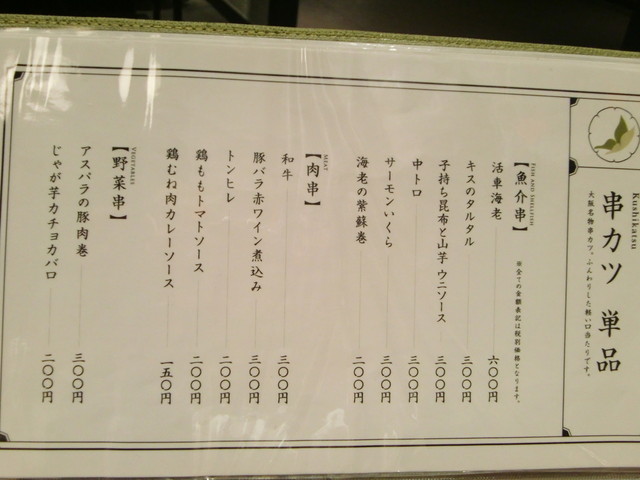 Kushikatsu
串カツ 単品
大阪名物串カツ。ふんわりした軽い口当たりです。
FISH AND SHELLFISH
【魚介串】
※全ての金額表記は税別価格となります。
活車海老 六〇〇円
キスのタルタル 三〇〇円
子持ち昆布と山芋 ウニソース 三〇〇円
中トロ 三〇〇円
サーモンいくら 三〇〇円
海老の紫蘇巻 二〇〇円
MEAT
【肉串】
和牛 三〇〇円
豚バラ赤ワイン煮込み 三〇〇円
トンヒレ 二〇〇円
鶏ももトマトソース 二〇〇円
鶏むね肉カレーソース 一五〇円
VEGETABLES
【野菜串】
アスパラの豚肉巻 三〇〇円
じゃが芋カチョカバロ 二〇〇円